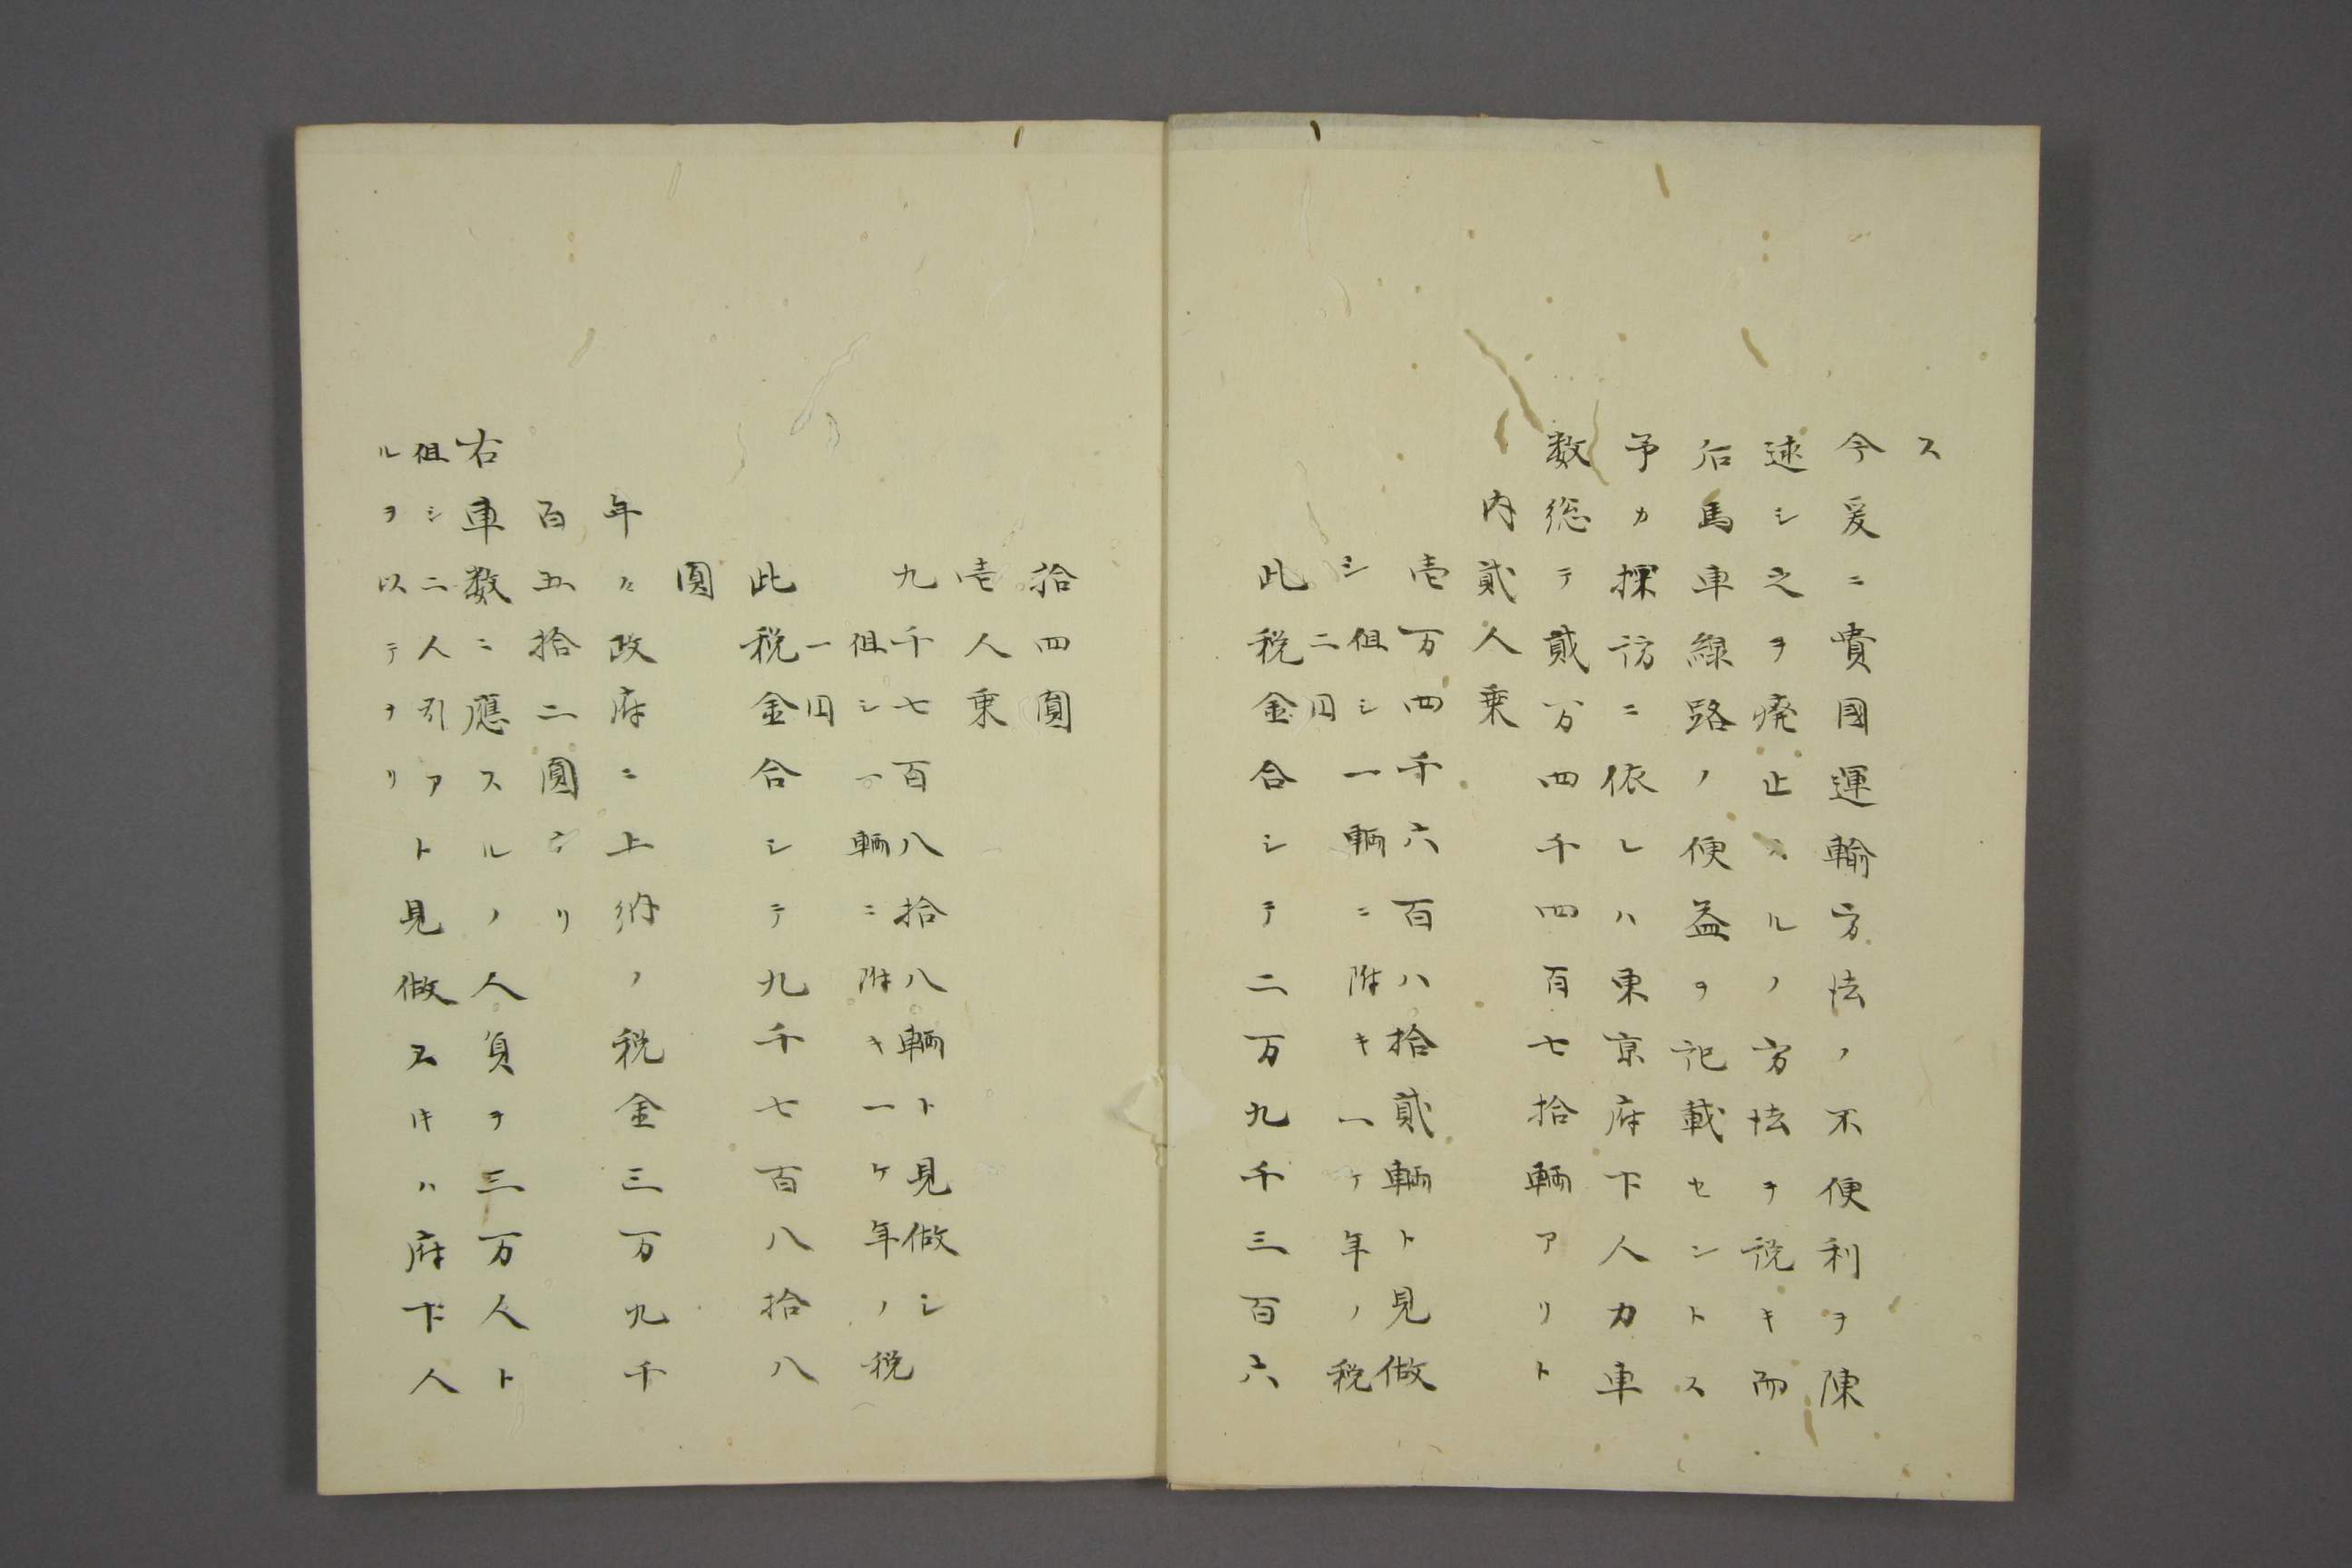 ス
今爰ニ貴國運輸方法ノ不便利ヲ陳
述シ之ヲ廃止スルノ方法ヲ説キ而
后馬車線路ノ便益ヲ記載セントス
予カ探訪ニ依レハ東京府下人力車
数総テ貳万四千四百七拾輌アリト
内貳人乗
壱万四千六百八拾貳輌ト見做
シ但シ一輌ニ附キ一ヶ年ノ税
二円
此税金合シテ二万九千三百六
拾四圓
壱人乗
九千七百八拾八輌ト見做シ
但シ一輌ニ附キ一ヶ年ノ税
一円
此税金合シテ九千七百八拾八
圓
年々政府ニ上納ノ税金三万九千
百五拾二圓ナリ
右車数ニ應スルノ人員ヲ三万人ト
但シ二人引アト見做スキハ府下人
ルヲ以テナリ